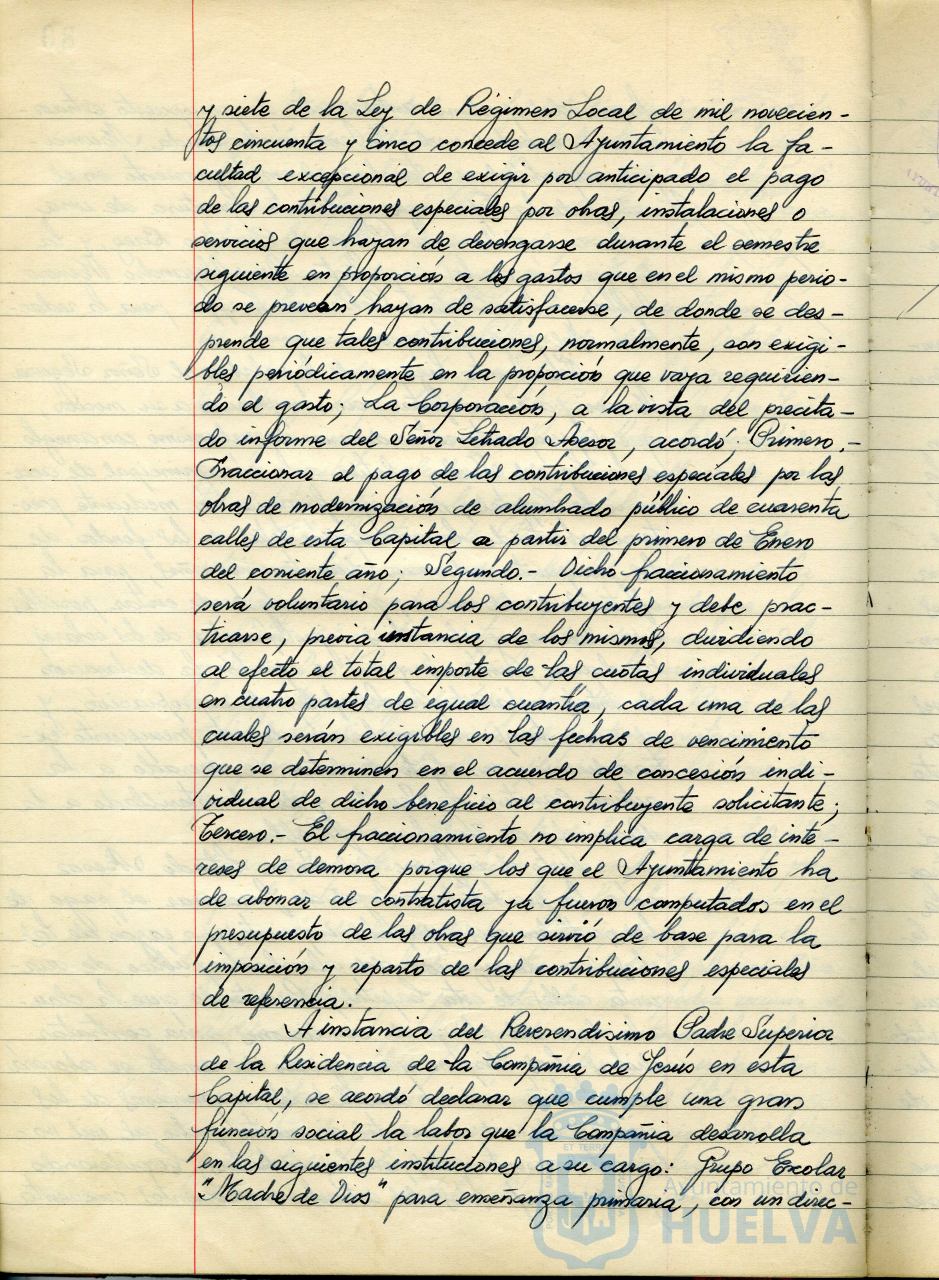 y siete de la Ley de Régimen Local de mil novecien-
tos cincuenta y cinco concede al Ayuntamiento la fa-
cultad excepcional de exigir por anticipado el pago
de las contribuciones especiales por obras, instalaciones o
servicios que hayan de devengarse durante el semestre
siguiente en proporción a los gastos que en el mismo perio-
do se prevean hayan de satisfacerse, de donde se des-
prende que tales contribuciones, normalmente, son exigi-
bles periódicamente en la proporción que vaya requirien-
do el gasto; La Corporación, a la vista del precita-
do informe del Señor Letrado Asesor, acordó: Primero.-
Fraccionar el pago de las contribuciones especiales por las
obras de modernización de alumbrado público de cuarenta
calles de esta Capital a partir del primero de Enero
del corriente año; Segundo.- Dicho fraccionamiento
será voluntario para los contribuyentes y debe prac-
ticarse, previa instancia de los mismos, dividiendo
al efecto el total importe de las cuotas individuales
en cuatro partes de igual cuantía, cada una de las
cuales serán exigibles en las fechas de vencimiento
que se determinen en el acuerdo de concesión indi-
vidual de dicho beneficio al contribuyente solicitante;
Tercero.- El fraccionamiento no implica carga de inte-
reses de demora porque los que el Ayuntamiento ha
de abonar al contratista ya fueron computados en el
presupuesto de las obras que sirvió de base para la
imposición y reparto de las contribuciones especiales
de referencia.
A instancia del Reverendisimo Padre Superior
de la Residencia de la Compañia de Jesús en esta
Capital, se acordó declarar que cumple una gran
función social la labor que la Compañia desarrolla
en las siguientes instituciones a su cargo: Grupo Escolar
"Madre de Dios" para enseñanza primaria, con un direc-
Ayuntamiento de
HUELVA